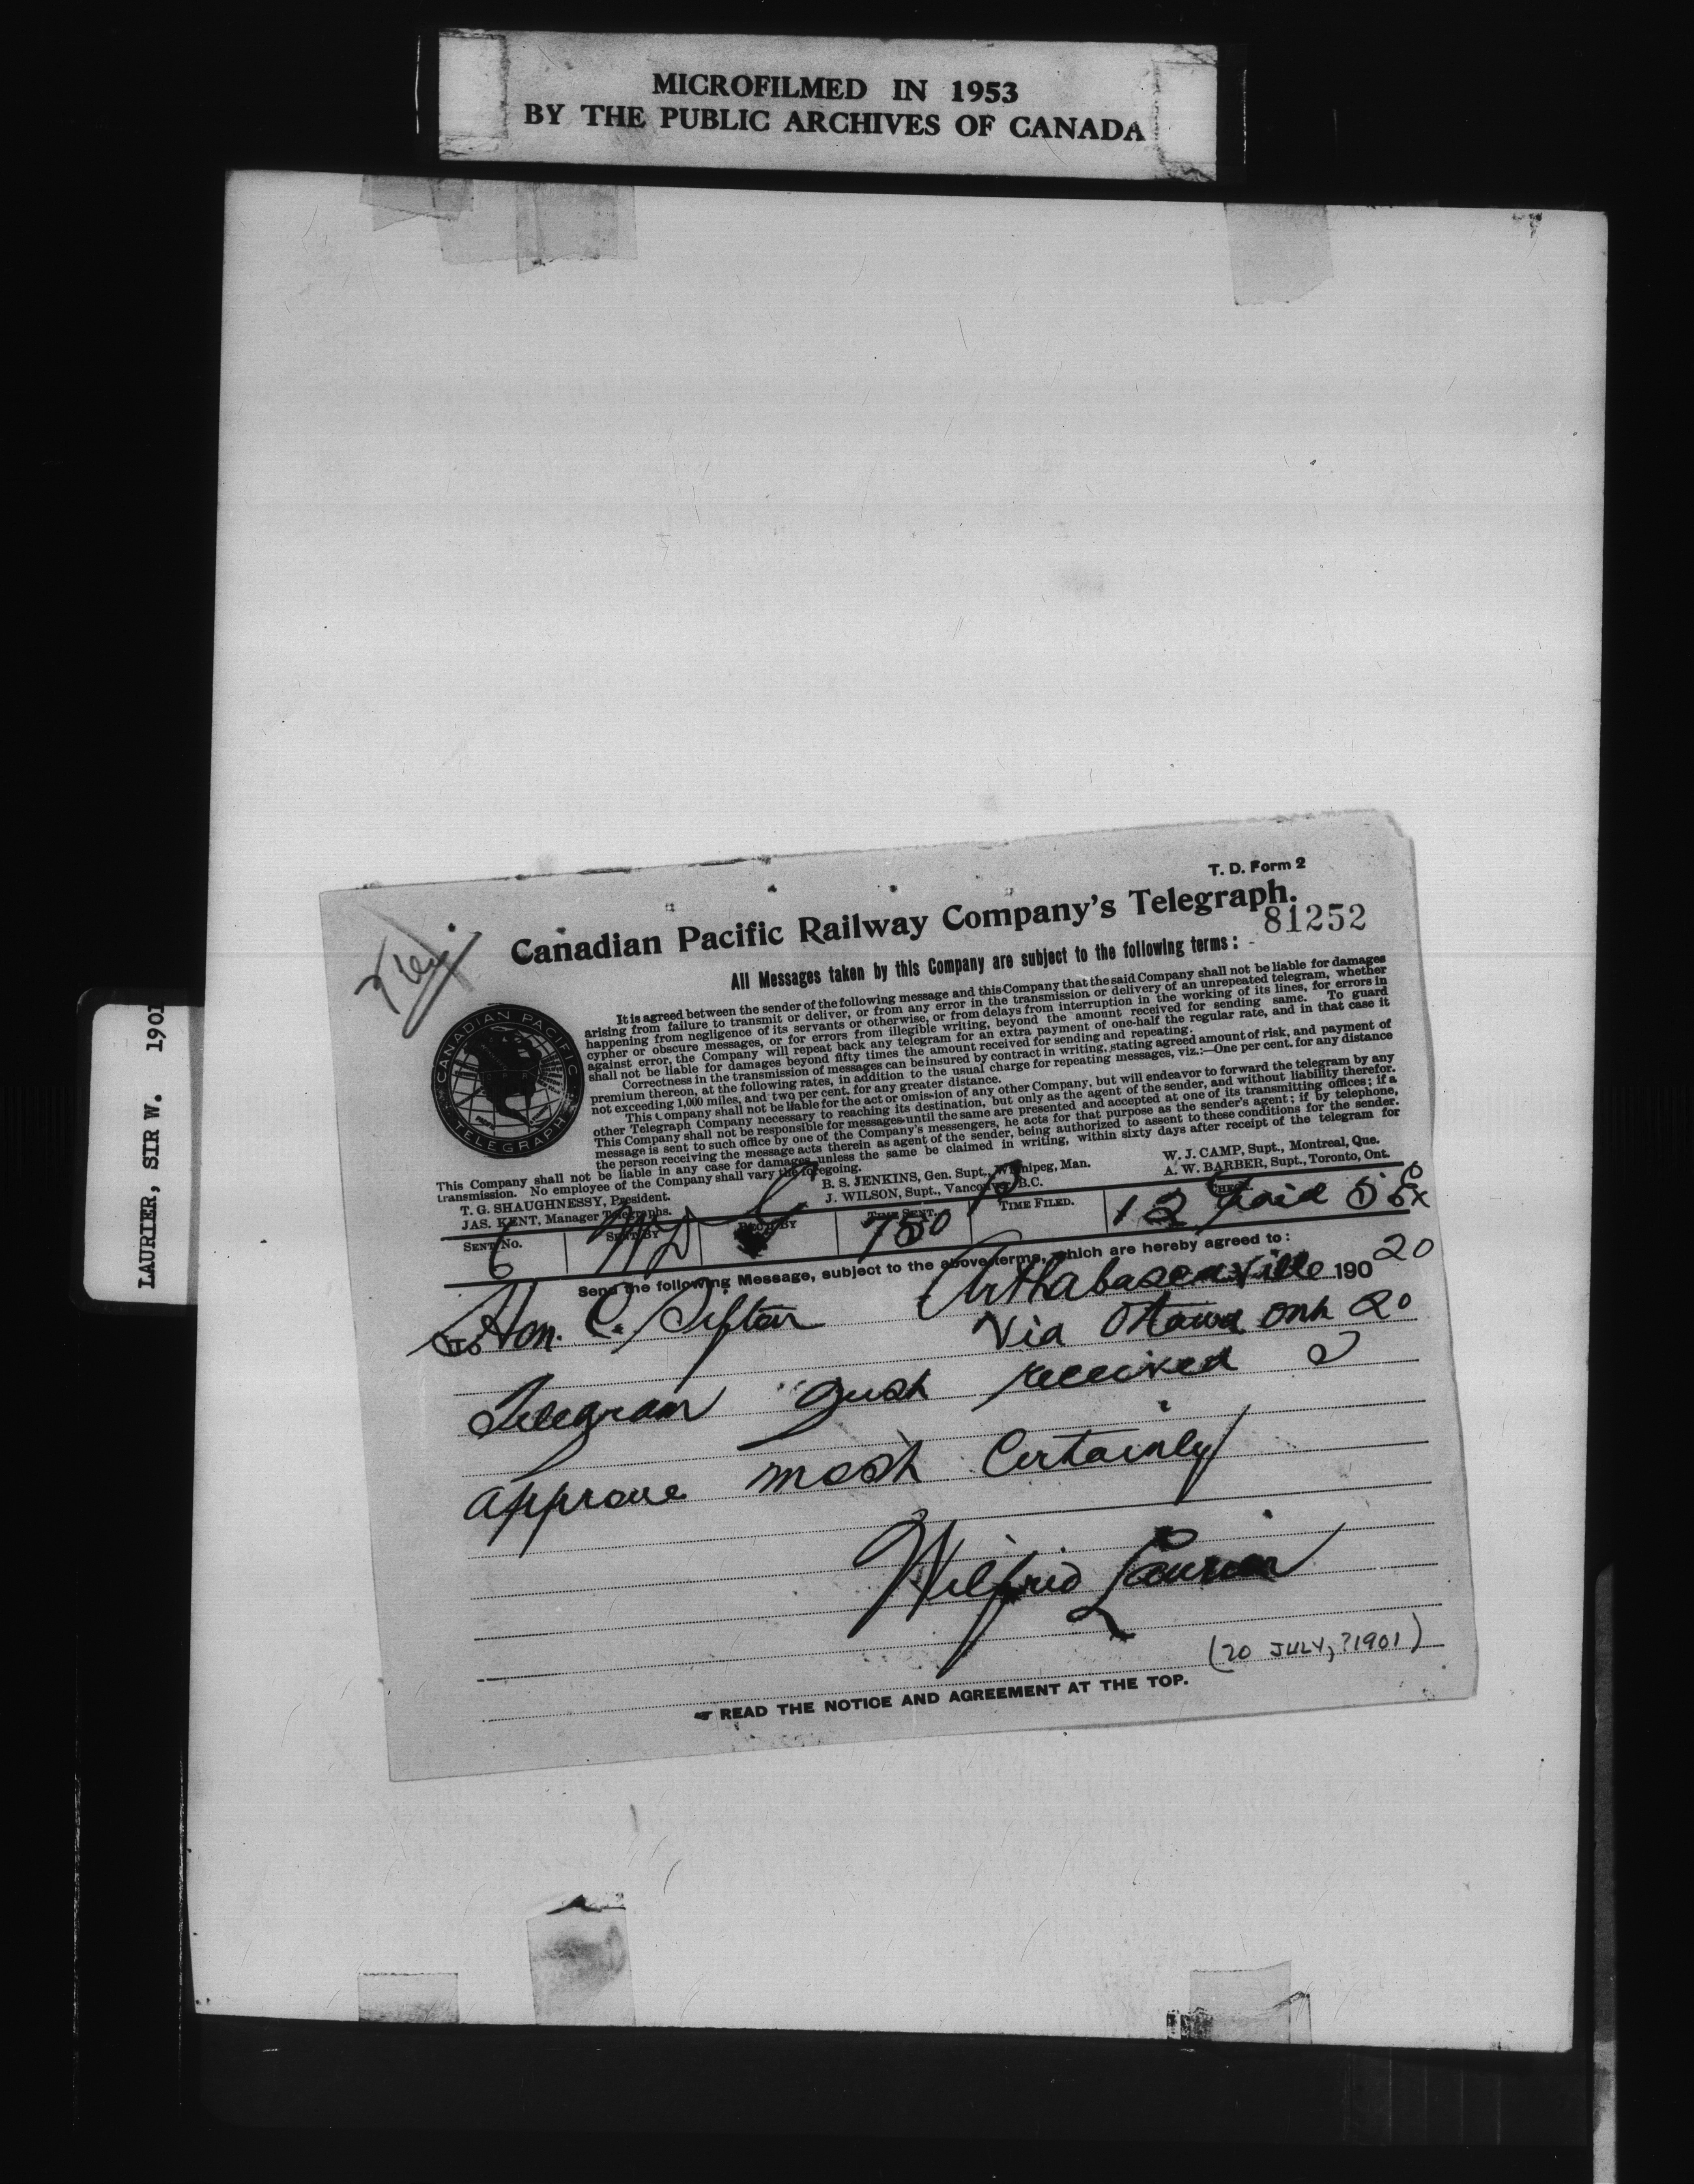 MICROFILMED IN 1953
BY THE PUBLIC ARCHIVES OF CANADA
LAURIER, SIR W. 1901
T. D. Form 2
Canadian Pacific Railway Company's Telegraph.
81252
All Messages taken by this Company are subject to the following terms:
CANADIAN PACIFIC
TELEGRAPH
It is agreed between the sender of the following message and this Company that the said Company shall not be liable for damages
arising from failure to transmit or deliver, or from any error in the transmission or delivery of an unrepeated telegram, whether
happening from negligence of its servants or otherwise, or from delays from interruption in the working of its lines, for errors in
cypher or obscure messages, or for errors from illegible writing, beyond the amount received for sending same. To guard
against error, the Company will repeat back any telegram for an extra payment of one-half the regular rate, and in that case it
shall not be liable for damages beyond fifty times the amount received for sending and repeating.
Correctness in the transmission of messages can be insured by contract in writing, stating agreed amount of risk, and payment of
premium thereon, at the following rates, in addition to the usual charge for repeating messages, viz.:—One per cent. for any distance
not exceeding 1,000 miles, and two per cent. for any greater distance.
This Company shall not be liable for the act or omission of any other Company, but will endeavor to forward the telegram by any
other Telegraph Company necessary to reaching its destination, but only as the agent of the sender, and without liability therefor.
This Company shall not be responsible for messages until the same are presented and accepted at one of its transmitting offices; if a
message is sent to such office by one of the Company's messengers, he acts for that purpose as the sender's agent; if by telephone,
the person receiving the message acts therein as agent of the sender, being authorized to assent to these conditions for the sender.
This Company shall not be liable in any case for damages, unless the same be claimed in writing, within sixty days after receipt of the telegram for
transmission. No employee of the Company shall vary the foregoing.
T. G. SHAUGHNESSY, President.
JAS. KENT, Manager Telegraphs.
B. S. JENKINS, Gen. Supt., Winnipeg, Man.
J. WILSON, Supt., Vancouver, B.C.
W. J. CAMP, Supt., Montreal, Que.
A. W. BARBER, Supt., Toronto, Ont.
SENT No. SENT BY REC'D BY TIME SENT. TIME FILED. CHECK.
6 750 P 12 Paid
Send the following Message, subject to the above terms, which are hereby agreed to:
Arthabascaville 190 20
To Hon. C. Sifton Via Ottawa Ont 20
Telegram just received
approve most Certainly
Wilfrid Laurier
(20 JULY, ?1901)
READ THE NOTICE AND AGREEMENT AT THE TOP.